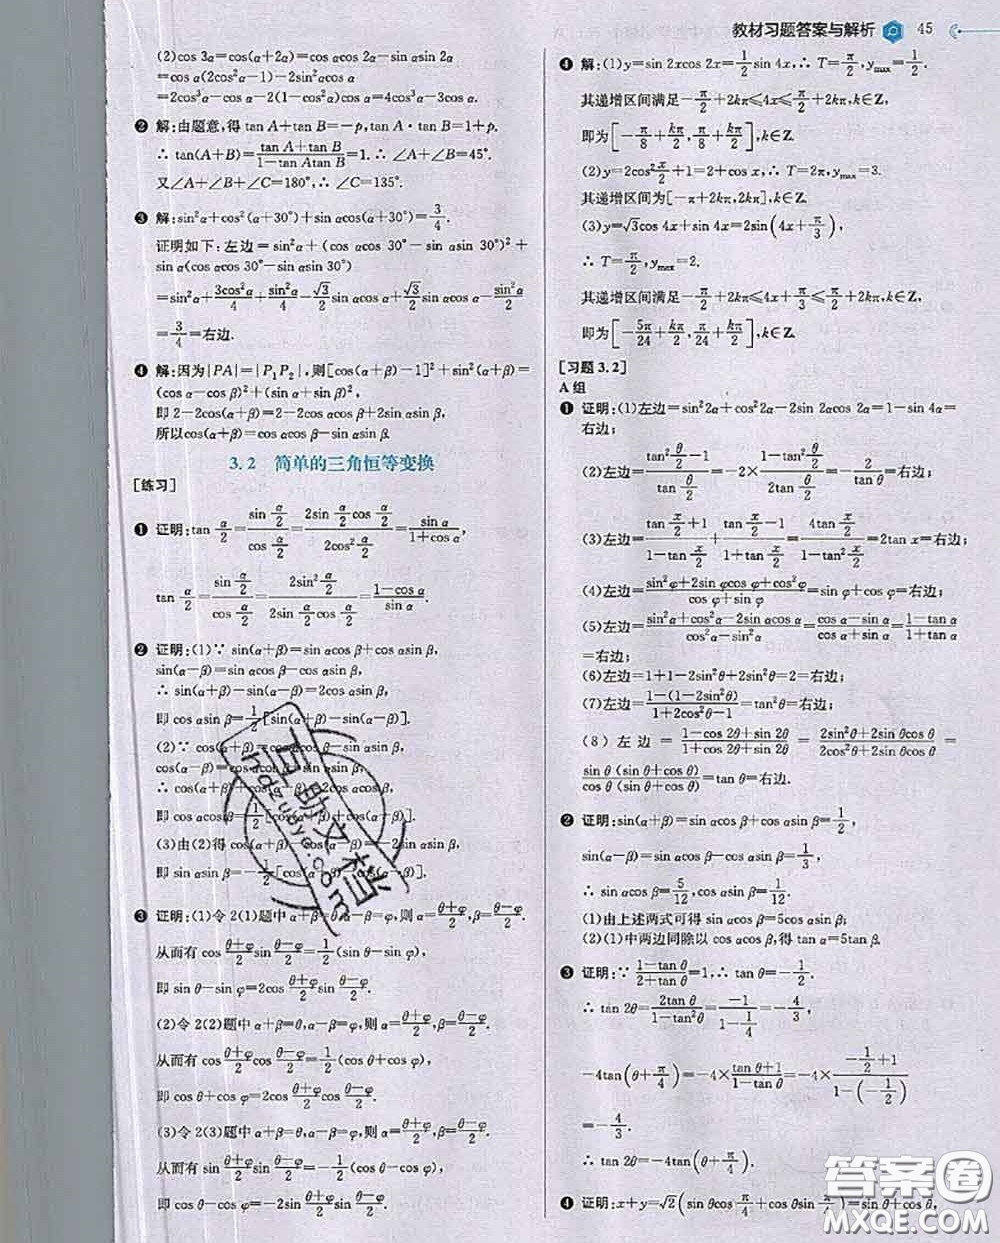 教材习题答案与解析 45
(2)cos 3α=cos(2α+α)=cos 2αcos α-sin αsin 2α
=cos α(2cos²α-1)-2sin²αcos α
=2cos³α-cos α-2(1-cos²α)cos α=4cos³α-3cos α.
❷ 解:由题意,得tan A+tan B=-p,tan A·tan B=1+p.
∴ tan(A+B)=(tan A+tan B)/(1-tan Atan B)=1.∴ ∠A+∠B=45°.
又∠A+∠B+∠C=180°,∴ ∠C=135°.
❸ 解:sin²α+cos²(α+30°)+sin αcos(α+30°)=3/4.
证明如下:左边=sin²α+(cos αcos 30°-sin αsin 30°)²+
sin α(cos αcos 30°-sin αsin 30°)
=sin²α+3cos²α/4+sin²α/4-√3/2 sin αcos α+√3/2 sin αcos α-sin²α/2
=3/4=右边.
❹ 解:因为|PA|=|P₁P₂|,则[cos(α+β)-1]²+sin²(α+β)=
(cos α-cos β)²+(sin α+sin β)²,
即 2-2cos(α+β)=2-2cos αcos β+2sin αsin β,
所以cos(α+β)=cos αcos β-sin αsin β.
3.2 简单的三角恒等变换
[练习]
❶ 证明:tan α/2=(sin α/2)/(cos α/2)=(2sin α/2 cos α/2)/(2cos² α/2)=sin α/(1+cos α),
tan α/2=(sin α/2)/(cos α/2)=(2sin² α/2)/(2sin α/2 cos α/2)=(1-cos α)/sin α.
❷ 证明:(1)∵ sin(α+β)=sin αcos β+cos αsin β,
sin(α-β)=sin αcos β-cos αsin β,
∴ sin(α+β)-sin(α-β)=2cos αsin β,
即 cos αsin β=1/2[sin(α+β)-sin(α-β)].
(2)∵ cos(α+β)=cos αcos β-sin αsin β,
cos(α-β)=cos αcos β+sin αsin β,
∴ cos(α+β)+cos(α-β)=2cos αcos β,
即 cos αcos β=1/2[cos(α+β)+cos(α-β)].
(3)由(2)得 cos(α+β)-cos(α-β)=-2sin αsin β,
即 sin αsin β=-1/2[cos(α+β)-cos(α-β)].
❸ 证明:(1)令 2(1)题中 α+β=θ,α-β=φ,则 α=(θ+φ)/2,β=(θ-φ)/2.
从而有 cos (θ+φ)/2 sin (θ-φ)/2=1/2(sin θ-sin φ),
即 sin θ-sin φ=2cos (θ+φ)/2 sin (θ-φ)/2.
(2)令 2(2)题中 α+β=θ,α-β=φ,则 α=(θ+φ)/2,β=(θ-φ)/2.
从而有 cos (θ+φ)/2 cos (θ-φ)/2=1/2(cos θ+cos φ),
即 cos θ+cos φ=2cos (θ+φ)/2 cos (θ-φ)/2.
(3)令 2(3)题中 α+β=θ,α-β=φ,则 α=(θ+φ)/2,β=(θ-φ)/2.
从而有 sin (θ+φ)/2 sin (θ-φ)/2=-1/2(cos θ-cos φ),
即 cos θ-cos φ=-2sin (θ+φ)/2 sin (θ-φ)/2.
❹ 解:(1)y=sin 2xcos 2x=1/2 sin 4x,∴ T=π/2,yₘₐₓ=1/2.
其递增区间满足-π/2+2kπ≤4x≤π/2+2kπ,k∈Z,
即为[-π/8+kπ/2,π/8+kπ/2],k∈Z.
(2)y=2cos² x/2+1=2+cos x,∴ T=2π,yₘₐₓ=3.
其递增区间为[-π+2kπ,2kπ],k∈Z.
(3)y=√3cos 4x+sin 4x=2sin(4x+π/3),
∴ T=π/2,yₘₐₓ=2.
其递增区间满足-π/2+2kπ≤4x+π/3≤π/2+2kπ,k∈Z,
即为[-5π/24+kπ/2,π/24+kπ/2],k∈Z.
[习题 3.2]
A 组
❶ 证明:(1)左边=sin²2α+cos²2α-2sin 2αcos 2α=1-sin 4α=
右边;
(2)左边=(tan² θ/2-1)/(tan θ/2)=-2×(1-tan² θ/2)/(2tan θ/2)=-2/tan θ=右边;
(3)左边=(tan x/2+1)/(1-tan x/2)+(tan x/2-1)/(1+tan x/2)=(4tan x/2)/(1-tan² x/2)=2tan x=右边;
(4)左边=(sin²φ+2sin φcos φ+cos²φ)/(cos φ+sin φ)=sin φ+cos φ=右边;
(5)左边=(sin²α+cos²α-2sin αcos α)/(cos²α-sin²α)=(cos α-sin α)/(cos α+sin α)=(1-tan α)/(1+tan α)=
右边;
(6)左边=1+1-2sin²θ+2sin²θ=2=右边;
(7)左边=(1-(1-2sin²θ))/(1+2cos²θ-1)=tan²θ=右边;
(8)左边=(1-cos 2θ+sin 2θ)/(1+cos 2θ+sin 2θ)=(2sin²θ+2sin θcos θ)/(2cos²θ+2sin θcos θ)=
sin θ(sin θ+cos θ)/cos θ(sin θ+cos θ)=tan θ=右边.
❷ 证明:sin(α+β)=sin αcos β+cos αsin β=1/2,
sin(α-β)=sin αcos β-cos αsin β=1/3,
∴ sin αcos β=5/12,cos αsin β=1/12.
(1)由上述两式可得 sin αcos β=5cos αsin β.
(2)(1)中两边同除以 cos αcos β,得 tan α=5tan β.
❸ 证明:∵ (1-tan θ)/(2+tan θ)=1,∴ tan θ=-1/2.
∴ tan 2θ=2tan θ/(1-tan²θ)=-1/(1-1/4)=-4/3,
-4tan(θ+π/4)=-4×(tan θ+1)/(1-tan θ)=-4×(-1/2+1)/(1-(-1/2))=
-4/3.
∴ tan 2θ=-4tan(θ+π/4).
❹ 证明:x+y=√2(sin θcos π/4+cos θsin π/4)=sin θ+cos θ,
互助文档
hdzuoye.com
答案圈
MXQE.COM